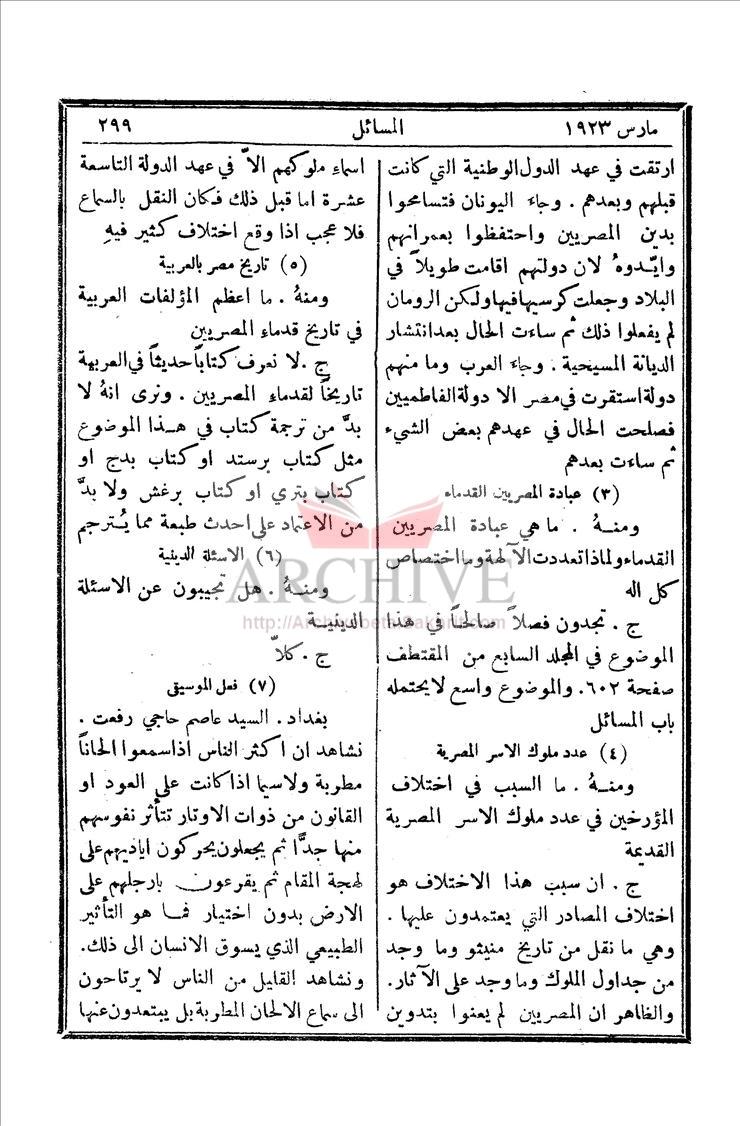 مارس ١٩٢٣
المسائل
٢٩٩
ارتقت في عهد الدول الوطنية التي كانت
قبلهم وبعدهم . وجاء اليونان فتسامحوا
بدين المصريين واحتفظوا بعمرانهم
وايّدوهُ لان دولتهم اقامت طويلاً في
البلاد وجعلت كرسيها فيها ولكن الرومان
لم يفعلوا ذلك ثم ساءت الحال بعد انتشار
الديانة المسيحية . وجاء العرب وما منهم
دولة استقرت في مصر الا دولة الفاطميين
فصلحت الحال في عهدهم بعض الشيء
ثم ساءت بعدهم
(٣) عبادة المصريين القدماء
ومنــهُ . ما هي عبادة المصريين
القدماء ولماذا تعددت الآلهة وما اختصاص
كل اله
ج . تجدون فصلاً صالحاً في هذا
الموضوع في المجلد السابع من المقتطف
صفحة ٦٠٢. والموضوع واسع لا يحتمله
باب المسائل
(٤) عدد ملوك الاسر المصرية
ومنــهُ . ما السبب في اختلاف
المؤرخين في عدد ملوك الاسر المصرية
القديمة
ج . ان سبب هذا الاختلاف هو
اختلاف المصادر التي يعتمدون عليها .
وهي ما نقل من تاريخ منيثو وما وجد
من جداول الملوك وما وجد على الآثار.
والظاهر ان المصريين لم يعنوا بتدوين
اسماء ملوكهم الاّ في عهد الدولة التاسعة
عشرة اما قبل ذلك فكان النقل بالسماع
فلا عجب اذا وقع اختلاف كثير فيهِ
(٥) تاريخ مصر بالعربية
ومنهُ . ما اعظم المؤلفات العربية
في تاريخ قدماء المصريين
ج . لا نعرف كتاباً حديثاً في العربية
تاريخاً لقدماء المصريين . ونرى انهُ لا
بدَّ من ترجمة كتاب في هــذا الموضوع
مثل كتاب برستد او كتاب بدج او
كتاب بتري او كتاب برغش ولا بدَّ
من الاعتماد على احدث طبعة مما يُترجم
(٦) الاسئلة الدينية
ومنــهُ . هل تجيبون عن الاسئلة
الدينيــة
ج . كلاّ
(٧) فعل الموسيقى
بغداد . السيد عاصم حاجي رفعت .
نشاهد ان اكثر الناس اذا سمعوا الحاناً
مطربة ولاسيما اذا كانت على العود او
القانون من ذوات الاوتار تتأثر نفوسهم
منها جدًّا ثم يجعلون يحركون اياديهم على
لهجة المقام ثم يقرعون بارجلهم على
الارض بدون اختيار فما هو التأثير
الطبيعي الذي يسوق الانسان الى ذلك.
ونشاهد القليل من الناس لا يرتاحون
الى سماع الالحان المطربة بل يبتعدون عنها
ARCHIVE